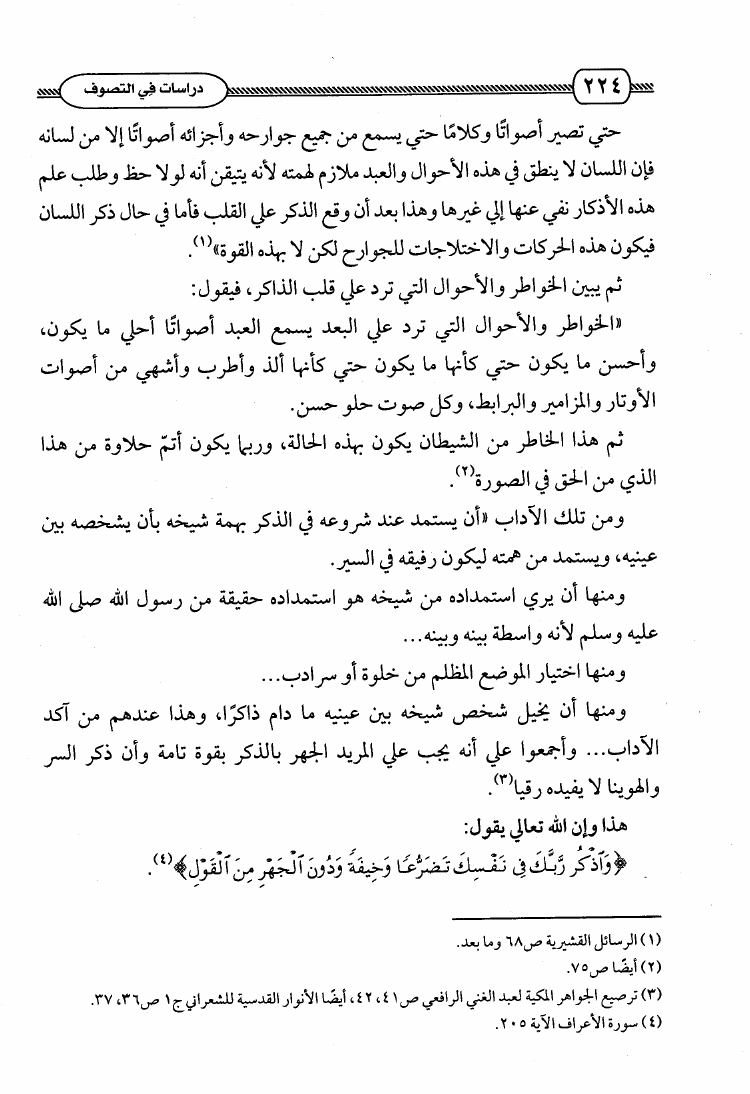 ٢٢٤
دراسات في التصوف
حتي تصير أصواتًا وكلامًا حتي يسمع من جميع جوارحه وأجزائه أصواتًا إلا من لسانه
فإن اللسان لا ينطق في هذه الأحوال والعبد ملازم لهمته لأنه يتيقن أنه لولا حظ وطلب علم
هذه الأذكار نفي عنها إلي غيرها وهذا بعد أن وقع الذكر علي القلب فأما في حال ذكر اللسان
فيكون هذه الحركات والاختلاجات للجوارح لكن لا بهذه القوة»(١).
ثم يبين الخواطر والأحوال التي ترد علي قلب الذاكر، فيقول:
«الخواطر والأحوال التي ترد علي البعد يسمع العبد أصواتًا أحلي ما يكون،
وأحسن ما يكون حتي كأنها ما يكون حتي كأنها ألذ وأطرب وأشهي من أصوات
الأوتار والمزامير والبرابط، وكل صوت حلو حسن.
ثم هذا الخاطر من الشيطان يكون بهذه الحالة، وربما يكون أتمّ حلاوة من هذا
الذي من الحق في الصورة(٢).
ومن تلك الآداب «أن يستمد عند شروعه في الذكر بهمة شيخه بأن يشخصه بين
عينيه، ويستمد من همته ليكون رفيقه في السير.
ومنها أن يري استمداده من شيخه هو استمداده حقيقة من رسول الله صلى الله
عليه وسلم لأنه واسطة بينه وبينه...
ومنها اختيار الموضع المظلم من خلوة أو سرادب...
ومنها أن يخيل شخص شيخه بين عينيه ما دام ذاكرًا، وهذا عندهم من آكد
الآداب... وأجمعوا علي أنه يجب علي المريد الجهر بالذكر بقوة تامة وأن ذكر السر
والهوينا لا يفيده رقيا(٣).
هذا وإن الله تعالي يقول:
﴿وَٱذْكُر رَّبَّكَ فِى نَفْسِكَ تَضَرُّعًا وَخِيفَةً وَدُونَ ٱلْجَهْرِ مِنَ ٱلْقَوْلِ﴾(٤).
(١) الرسائل القشيرية ص٦٨ وما بعد.
(٢) أيضًا ص٧٥.
(٣) ترصيع الجواهر المكية لعبد الغني الرافعي ص٤١، ٤٢، أيضًا الأنوار القدسية للشعراني ج١ ص٣٦، ٣٧.
(٤) سورة الأعراف الآية ٢٠٥.